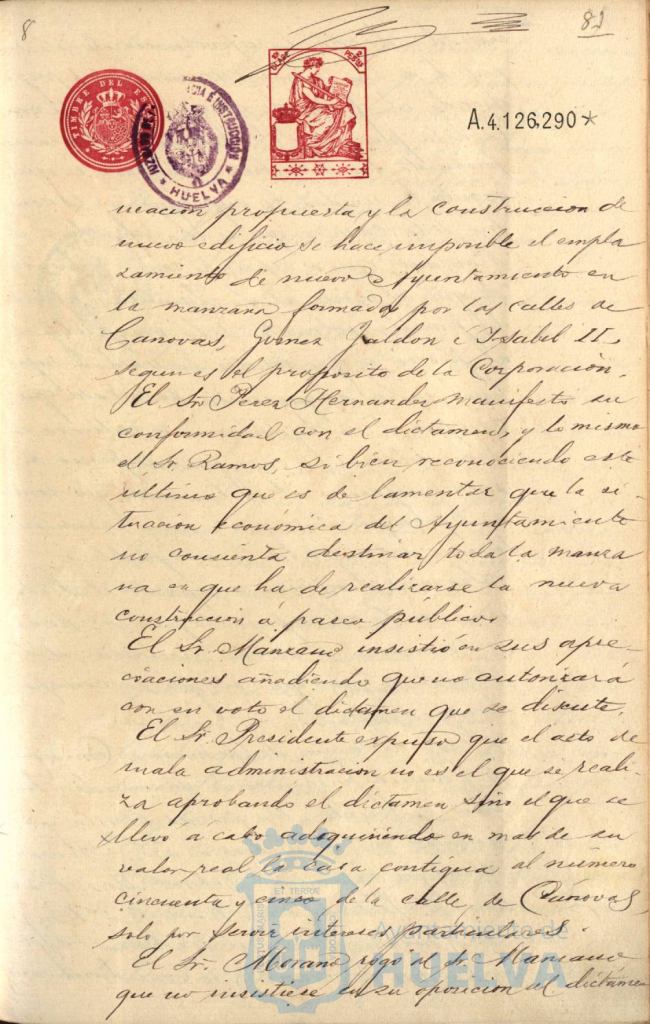 8
81
TIMBRE DEL E
CIA E INSTRUCCION
HUELVA
CLASE
PESETAS
A.4.126.290*
uacion propuesta y la construccion de
nuevo edificio se hace imposible el empla
zamiento de nuevo Ayuntamiento en
la manzana formada por las calles de
Canovas, Gomez Jaldon é Isabel II,
segun es el proposito de la Corporación.
El Sr. Perez Hernandez manifestó su
conformidad con el dictamen, y lo mismo
el Sr. Ramos, si bien reconociendo este
ultimo que es de lamentar que la si-
tuacion económica del Ayuntamiento
no consienta destinar toda la manza
na en que ha de realizarse la nueva
construccion á paseo público.
El Sr. Manzano insistió en sus apre-
ciaciones añadiendo que no autorizará
con su voto el dictamen que se discute.
El Sr. Presidente expuso que el acto de
mala administracion no es el que se reali-
za aprobando el dictamen sino el que se
llevó á cabo adquiriendo en mas de su
valor real la casa contigua al número
cincuenta y cinco de la calle de Cánovas,
solo por servir intereses particulares.
El Sr. Morano rogó al Sr. Manzano
que no insistiese en su oposicion al dictámen
Ayuntamiento de
HUELVA